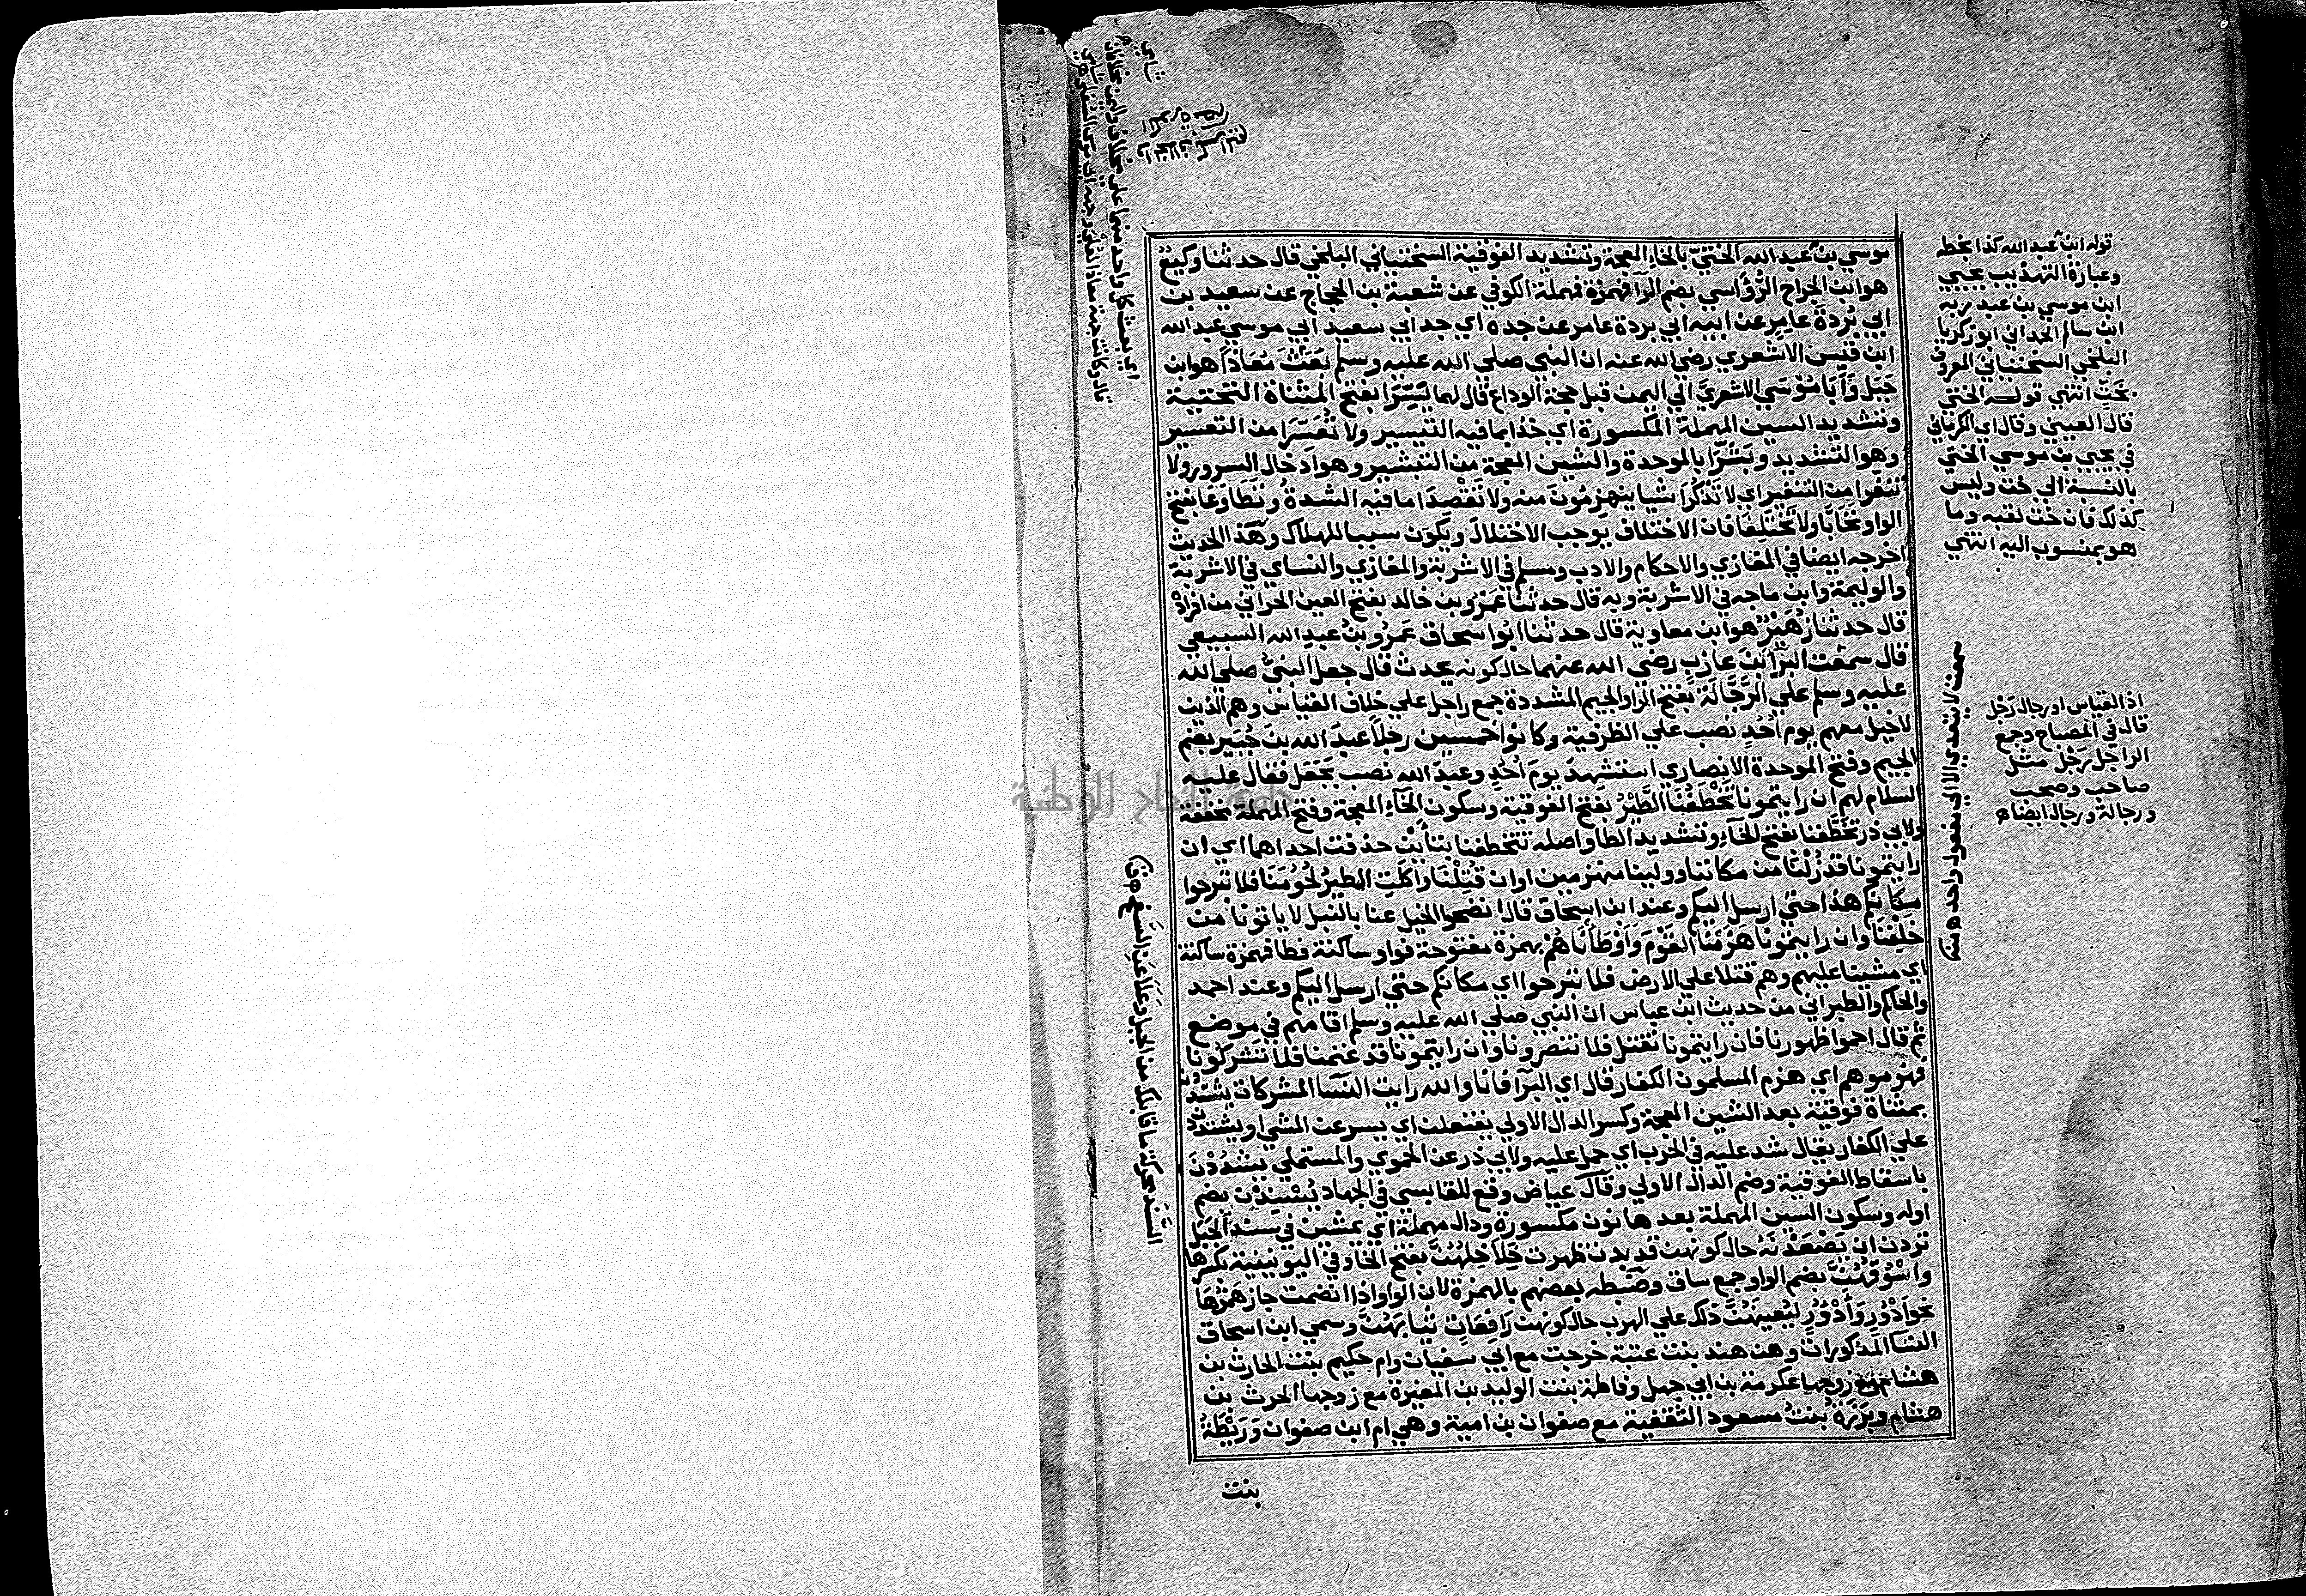 موسي بن عبد الله الختي بالخاء المعجمة وتشديد الفوقية السختياني البلخي قال حدثنا وكيع
هو ابن الجراح الرؤاسي بضم الرا فهمزة فمهملة الكوفي عن شعبة بن الحجاج عن سعيد بن
ابي بردة عامر عن ابيه ابي بردة عامر عن جده اي جد ابي سعيد ابي موسي عبد الله
ابن قيس الاشعري رضي الله عنه ان النبي صلي الله عليه وسلم بعث معاذا هو ابن
جبل وأبا موسي الاشعري الي اليمن قبل حجة الوداع قال لهما يسرا بفتح المثناة التحتية
وتشديد السين المهملة المكسورة اي خذا بما فيه التيسير ولا تعسرا من التعسير
وهو التشديد وبشرا بالموحدة والشين المعجمة من التبشير وهو ادخال السرور ولا
تنفرا من التنفير اي لا تذكرا شيا ينهزمون منه ولا تقصدا ما فيه الشدة وتطاوعا بفتح
الواو تحابا ولا تختلفا فان الاختلاف يوجب الاختلال ويكون سببا للهلاك وهذا الحديث
اخرجه ايضا في المغازي والاحكام والادب ومسلم في الاشربة والمغازي والنساي في الاشربة
والوليمة وابن ماجه في الاشربة وبه قال حدثنا عمرو بن خالد بفتح العين الحراني من افراد
قال حدثنا زهير هو ابن معاوية قال حدثنا ابوا سحاق عمرو بن عبد الله السبيعي
قال سمعت البرا ابن عازب رضي الله عنهما حال كونه يحدث قال جعل النبي صلي الله
عليه وسلم علي الرجالة بفتح الرا والجيم المشددة جمع راجل علي خلاف القياس وهم الذين
لا خيل معهم يوم احد نصب علي الظرفية وكانوا خمسين رجلا عبد الله بن جبير بضم
الجيم وفتح الموحدة الانصاري استشهد يوم احد وعبد الله نصب بجعل فقال عليه
السلام لهم ان رايتمونا تخطفنا الطير بفتح الفوقية وسكون الخاء المعجمة وفتح المهملة مخففة
ولابي ذر تخطفنا بفتح الخاء وتشديد الطا واصله تتخطفنا بتأين حذفت احداهما اي ان
رايتمونا قد زلنا من مكاننا وولينا منهزمين او ان قتلنا واكلت الطير لحومنا فلا تبرحوا
مكانكم هذا حتي ارسل اليكم وعند ابن اسحاق قال انضحوا الخيل عنا بالنبل لا ياتونا من
خلفنا وان رايتمونا هزمنا القوم واوطأناهم بهمزة مفتوحة فواو ساكنة فطا فهمزة ساكنة
اي مشينا عليهم وهم قتلا علي الارض فلا تبرحوا اي مكانكم حتي ارسل اليكم وعند احمد
والحاكم والطبراني من حديث ابن عباس ان النبي صلي الله عليه وسلم اقامهم في موضع
ثم قال احموا ظهورنا فان رايتمونا نقتل فلا تنصرونا وان رايتمونا قد غنمنا فلا تشركونا
فهزموهم اي هزم المسلمون الكفار قال اي البرا فانا والله رايت النسا المشركات يشتددن
بمثناة فوقية بعد الشين المعجمة وكسر الدال الاولي يفتعلن اي يسرعن المشي او يشتددن
علي الكفار يقال شد عليه في الحرب اي حمل عليه ولابي ذر عن الحموي والمستملي يشددن
باسقاط الفوقية وضم الدال الاولي وقال عياض وقع للقابسي في الجهاد يسندن بضم
اوله وسكون السين المهملة بعدها نون مكسورة ودال مهملة اي يمشين في سند الجبل
تردن ان يصعدنه حال كونهن قد بدت ظهرت خلاخلهن بفتح الخا وفي اليونينية بكسرها
واسوقهن بضم الواو جمع ساق وضبطه بعضهم بالهمزة لان الواو اذا انضمت جاز همزها
نحو ادور وأدؤر ليعينهن ذلك علي الهرب حال كونهن رافعات ثيابهن وسمي ابن اسحاق
النسا المذكورات وهن هند بنت عتبة خرجت مع ابي سفيان وام حكيم بنت الحارث بن
هشام مع زوجها عكرمة بن ابي جهل وفاطمة بنت الوليد بن المغيرة مع زوجها الحرث بن
هشام وبرزة بنت مسعود الثقفية مع صفوان بن امية وهي ام ابن صفوان وريطة
بنت
قوله ابن عبد الله كذا بخطه
وعبارة التهذيب يحيي
ابن موسي بن عبد ربه
ابن سالم الحداني ابو زكريا
البلخي السختياني المعروف
بخت انتهي قوله الختي
قال العيني وقال اي الكرماني
في يحيي بن موسي الختي
بالنسبة الي خت وليس
كذلك فان خت لقبه وما
هو بمنسوب اليه انتهي
سمعت لا يتعدي الا الي مفعول واحد
اذ القياس او رجال رجل
قال في المصباح وجمع
الراجل رجل مثل
صاحب وصحب
ورجالة ورجال ايضا ه
السند محركة ما قابلك من الجبل وعلا عن السفح ه ق